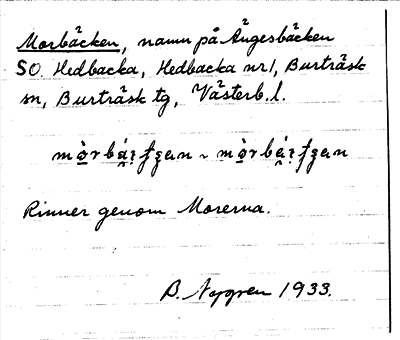 Morbäcken, namn på Ängesbäcken
SO. Hedbacka, Hedbacka nr1, Burträsk
sn, Burträsk tg, Västerb. l.
Rinner genom Morerna.
B. Nygren 1933.